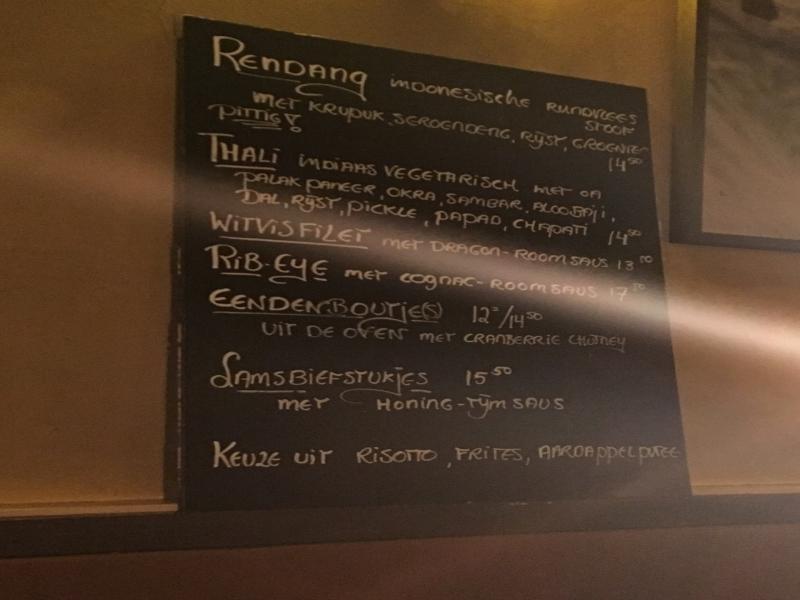 RENDANG INDONESISCHE RUNDVLEES STOOF
MET KRUPUK, SEROENDENG, RIJST, GROENTE
PITTIG! 14.50
THALI INDIAAS VEGETARISCH MET OA
PALAK PANEER, OKRA, SAMBAR, ALOO BAJI,
DAL, RIJST, PICKLE, PAPAD, CHAPATI 14.50
WITVISFILET MET DRAGON-ROOMSAUS 13
RIB-EYE MET COGNAC-ROOMSAUS 17
EENDENBOUTJE(S) 12=/14.50
UIT DE OVEN MET CRANBERRIE CHUTNEY
LAMSBIEFSTUKJES 15.50
MET HONING-TIJMSAUS
KEUZE UIT RISOTTO, FRITES, AARDAPPELPUREE